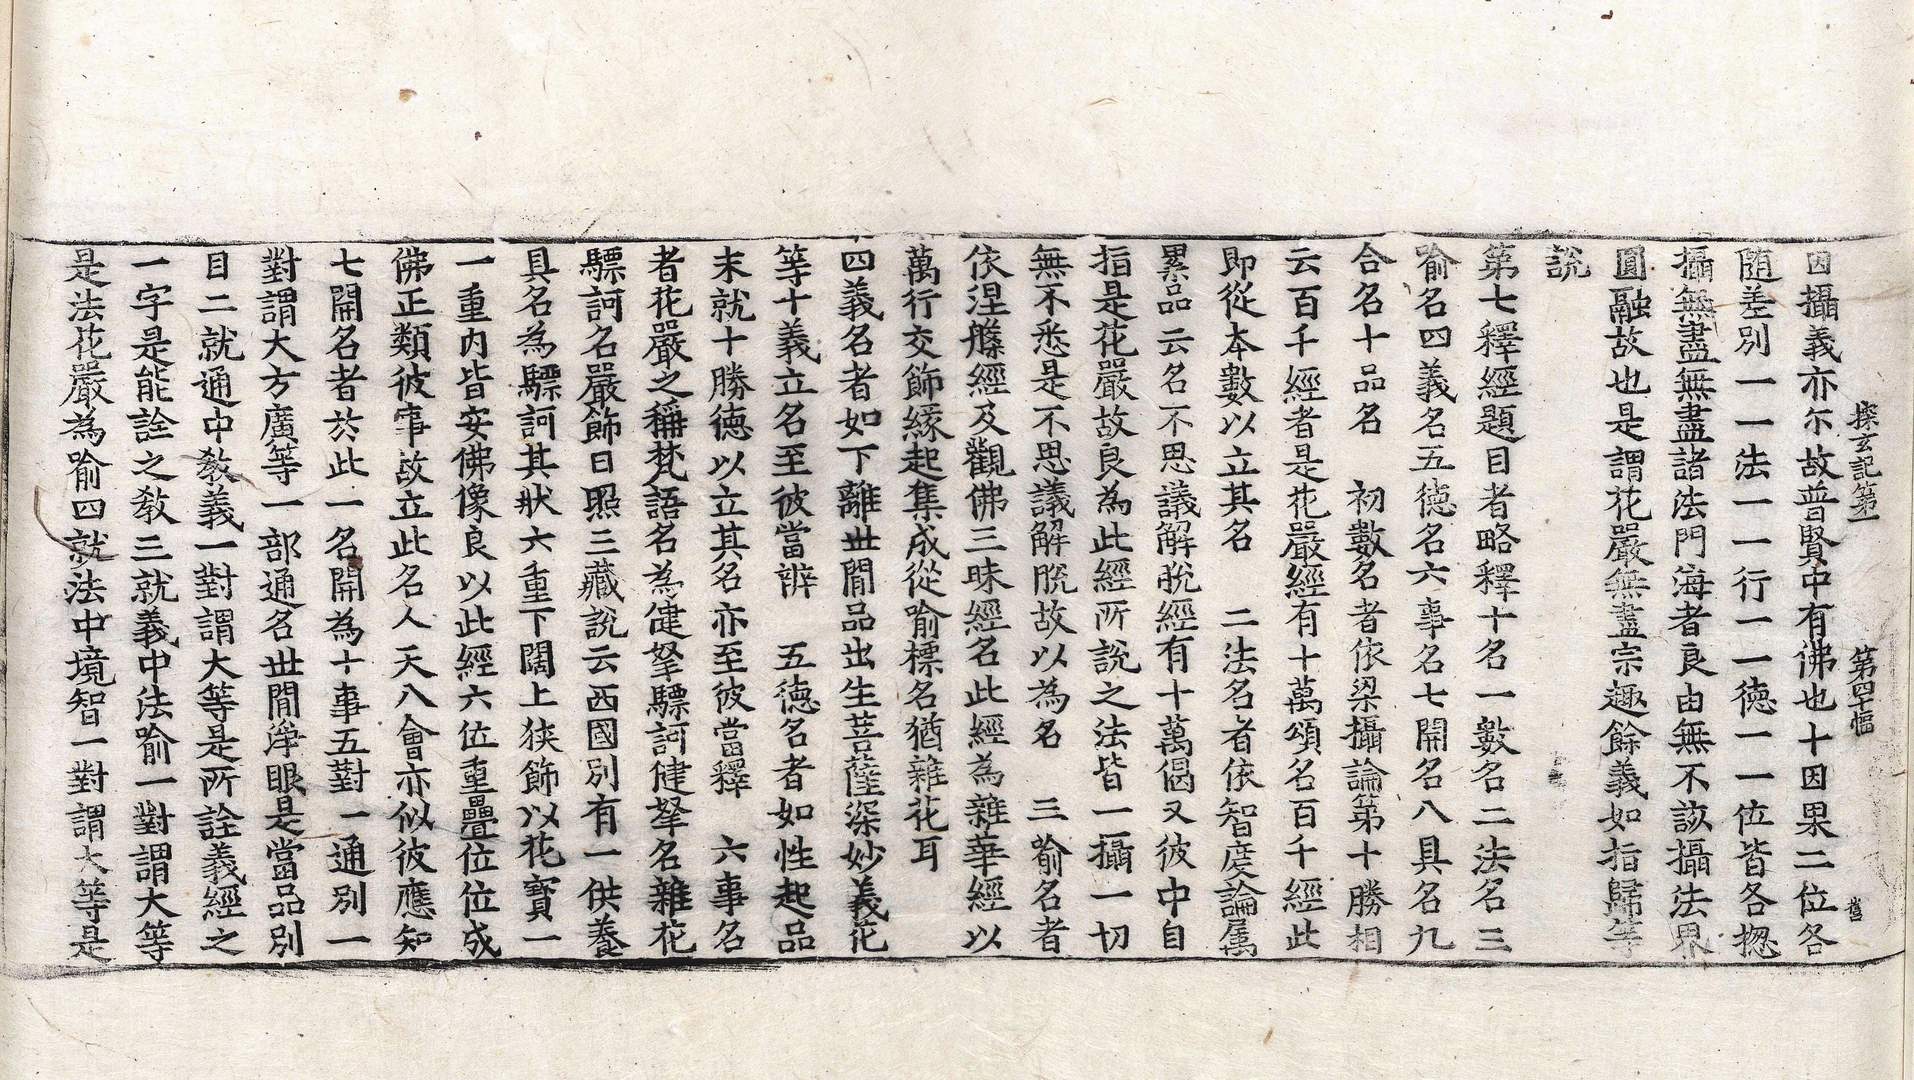 探玄記第一　第四十幅　旹
因攝義亦尓故普賢中有佛也十因果二位各
随差別一一法一一行一一德一一位皆各揔
攝無盡無盡諸法門海者良由無不該攝法界
圓融故也是謂花嚴無盡宗趣餘義如指歸等
說
第七釋經題目者略釋十名一數名二法名三
喻名四義名五德名六事名七開名八具名九
合名十品名　初數名者依梁攝論第十勝相
云百千經者是花嚴經有十萬頌名百千經此
即從本數以立其名　二法名者依智度論属
累品云名不思議解脫經有十萬偈又彼中自
指是花嚴故良為此經所說之法皆一攝一切
無不悉是不思議解脫故以為名　三喻名者
依涅槃經及觀佛三昧經名此經為雜華經以
萬行交飾緣起集成從喻標名猶雜花耳
四義名者如下離世間品出生菩薩深妙義花
等十義立名至彼當辨　五德名者如性起品
末就十勝德以立其名亦至彼當釋　六事名
者花嚴之稱梵語名為健拏驃訶健拏名雜花
驃訶名嚴飾日照三藏說云西國別有一供養
具名為驃訶其狀六重下闊上狹飾以花寶一
一重內皆安佛像良以此經六位重疊位位成
佛正類彼事故立此名人天八會亦似彼應知
七開名者於此一名開為十事五對一通別一
對謂大方廣等一部通名世間淨眼是當品別
目二就通中教義一對謂大等是所詮義經之
一字是能詮之教三就義中法喻一對謂大等
是法花嚴為喻四就法中境智一對謂大等是